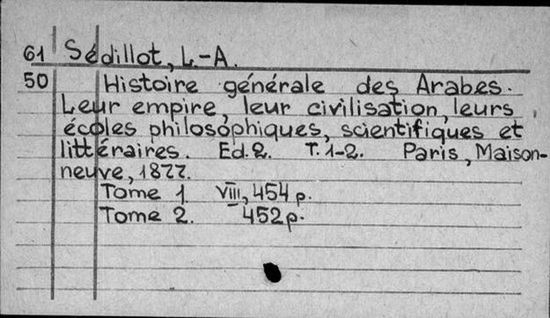 61 Sédillot, L.-A.
50 Histoire générale des Arabes.
Leur empire, leur civilisation, leurs
écoles philosophiques, scientifiques et
littéraires. Ed. 2. T. 1-2. Paris, Maison-
neuve, 1877.
Tome 1 VIII, 454 p.
Tome 2. 452 p.